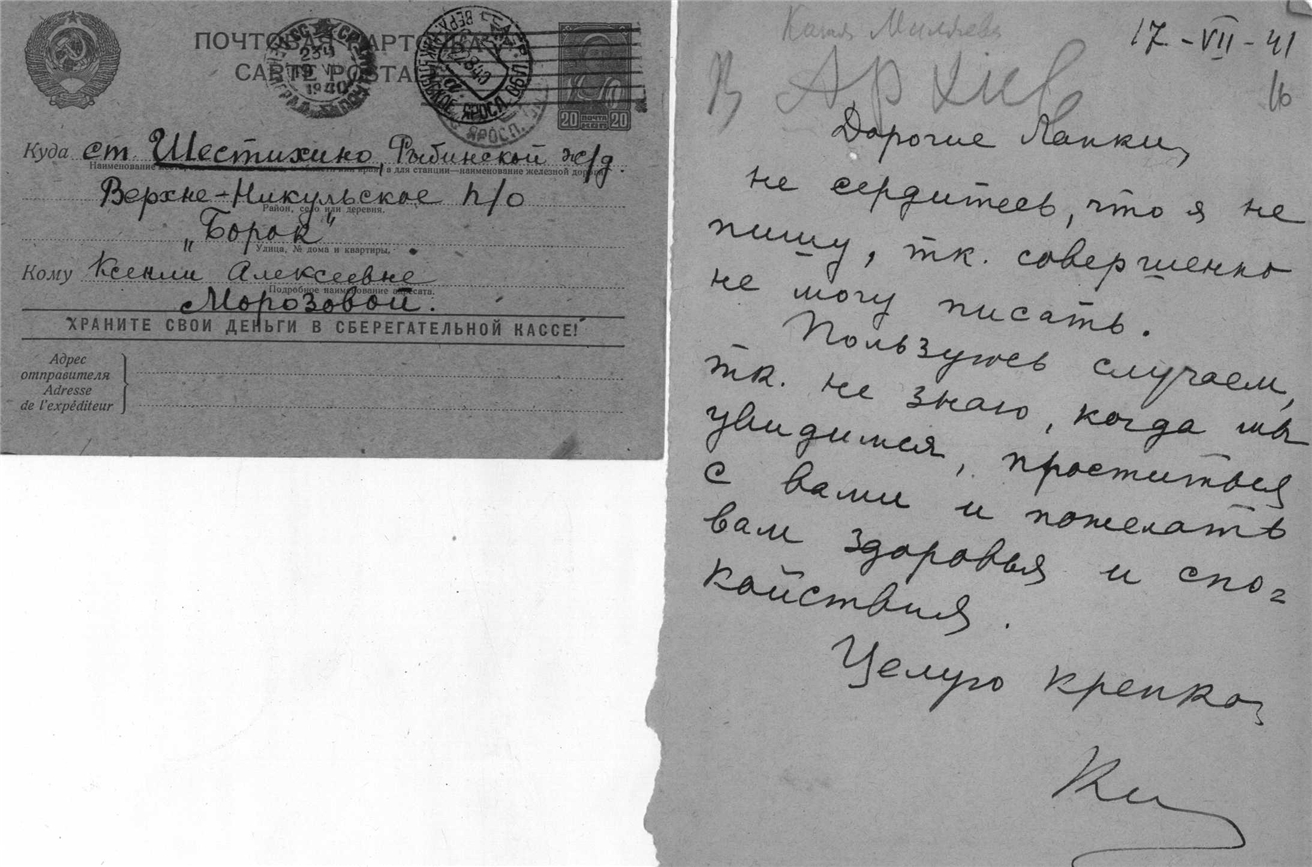 ПОЧТОВАЯ КАРТОЧКА
CARTE POSTALE
20 ПОЧТА КОП. 20
Куда ст. Шестихино, Рыбинской ж/д.
Верхне-Никульское п/о
Район, село или деревня.
„Борок"
Улица, № дома и квартиры.
Кому Ксении Алексеевне
Подробное наименование адресата.
Морозовой.
ХРАНИТЕ СВОИ ДЕНЬГИ В СБЕРЕГАТЕЛЬНОЙ КАССЕ!
Адрес
отправителя
Adresse
de l'expéditeur
17-VII-41
В Архив
16
Дорогие Лапки,
не сердитесь, что я не
пишу, тк. совершенно
не могу писать.
Пользуюсь случаем,
тк. не знаю, когда мы
увидимся, проститься
с вами и пожелать
вам здоровья и спо=
койствия.
Целую крепко,